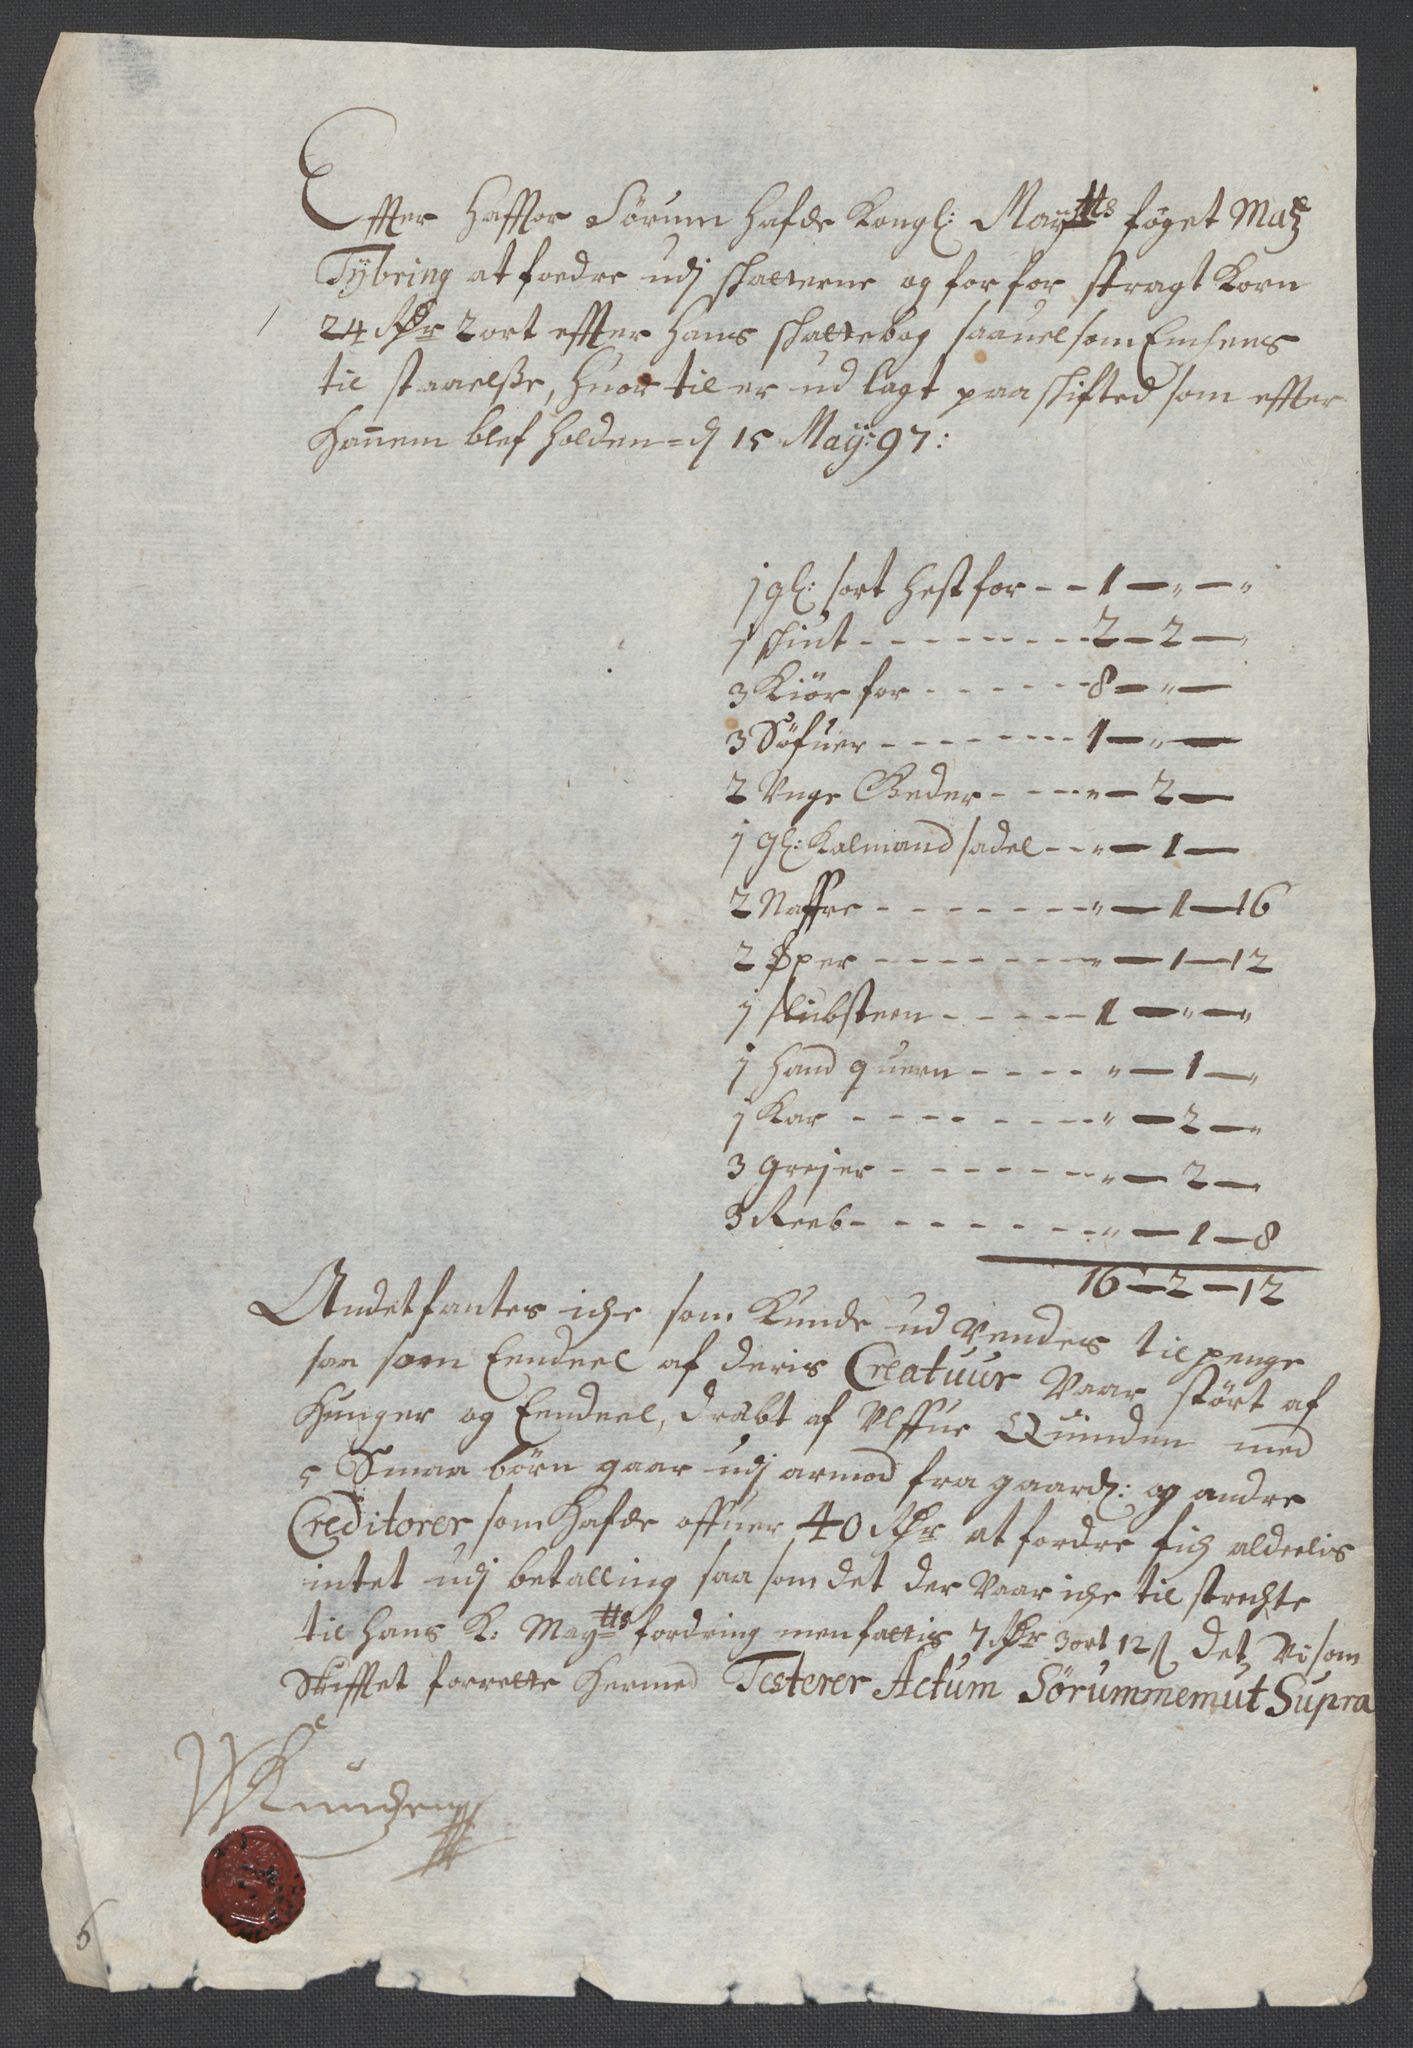 Effter Haffor Sørum hafde Kongl: Maÿtts foget Matz
Tÿbring at fordre udj skatterne og for for stragt Korn
24 Rdr 2 ort effter hans skattebog saauelsom Enchens
til staaelsse, huor til er ud lagt paa skifted som effter
hannem blef holden = d 15 Maÿ: 97:
j gl: sort hest for - - 1 — " — "
j skiut - - - 2 — 2 — "
3 Kiör for - - - 8 — " —
3 Söfuer - - - 1 — " —
2 Unge Geder - - - " — 2 —
j gl: Kalmand sadel - - " — 1 —
2 Naffre - - - " — 1 — 16
2 Øxer - - - " — 1 — 12
j slibsteen - - - 1 — " — "
j hand quern - - - " — 1 — "
j Kar - - - " — 2 — "
3 grejer - - - " — 2 — "
3 Reeb - - - " — 1 — 8
16 — 2 — 12
Andet fantes iche som Kunde ud Vendes til penge
saa som Eendeel af deris Creatuur Vaar stört af
hunger og Eendeel, dræbt af Ulffue Quinden med
5 Smaa börn gaar udj armod fra gaard: og andre
Creditorer som hafde offuer 40 Rdr at fordre fich aldeelis
intet udj betalling saa som det der Vaar iche til strechte
til hans K: Maÿtts fordring men fattis 7 Rdr 3 ort 12 s det Vi som
Skifftet forrette hermed Testerer Actum Sørummem ut Supra
W Knudsen
6